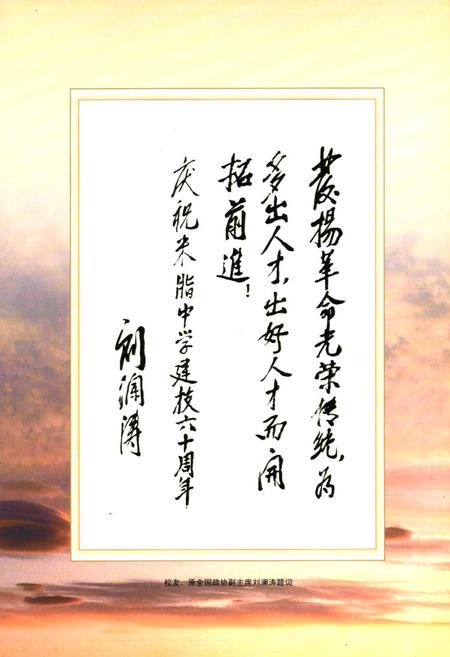 发扬革命光荣传统，为
多出人才，出好人才而开
拓前進！
庆祝米脂中学建校六十周年
刘澜涛
校友、原全国政协副主席刘澜涛题词